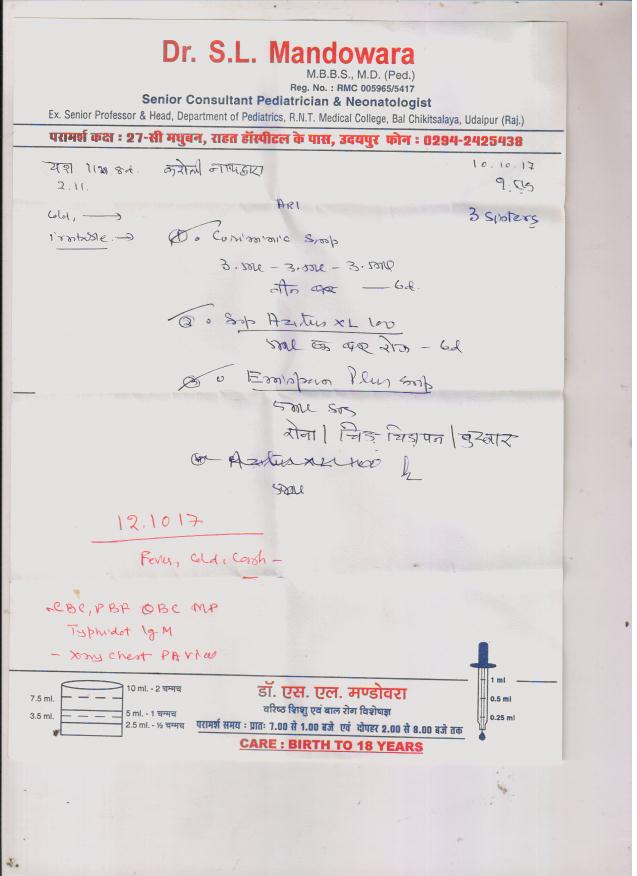 Dr. S.L. Mandowara
M.B.B.S., M.D. (Ped.)
Reg. No. : RMC 005965/5417
Senior Consultant Pediatrician & Neonatologist
Ex. Senior Professor & Head, Department of Pediatrics, R.N.T. Medical College, Bal Chikitsalaya, Udaipur (Raj.)
परामर्श कक्ष : 27-सी मधुबन, राहत हॉस्पीटल के पास, उदयपुर फोन : 0294-2425438
यश
10.10.17
2.11.
ARI
3 Sisters
Cold,
Syrup
3.ml - 3.ml - 3.ml
तीन बार - 6d.
② Syp Azitus XL 100
5ml एक बार रोज - 6d
Plus Syrup
5ml SOS
रोना / चिड़चिड़ापन / बुखार
Azitus XL 100
5ml
12.1017
Fever, Cold, Cough -
- CBC, PBF QBC MP
Typhidot IgM
- Xray Chest PA View
10 ml. - 2 चम्मच
7.5 ml.
5 ml. - 1 चम्मच
3.5 ml.
2.5 ml. - ½ चम्मच
डॉ. एस. एल. मण्डोवरा
वरिष्ठ शिशु एवं बाल रोग विशेषज्ञ
परामर्श समय : प्रातः 7.00 से 1.00 बजे एवं दोपहर 2.00 से 8.00 बजे तक
CARE : BIRTH TO 18 YEARS
1 ml
0.5 ml
0.25 ml